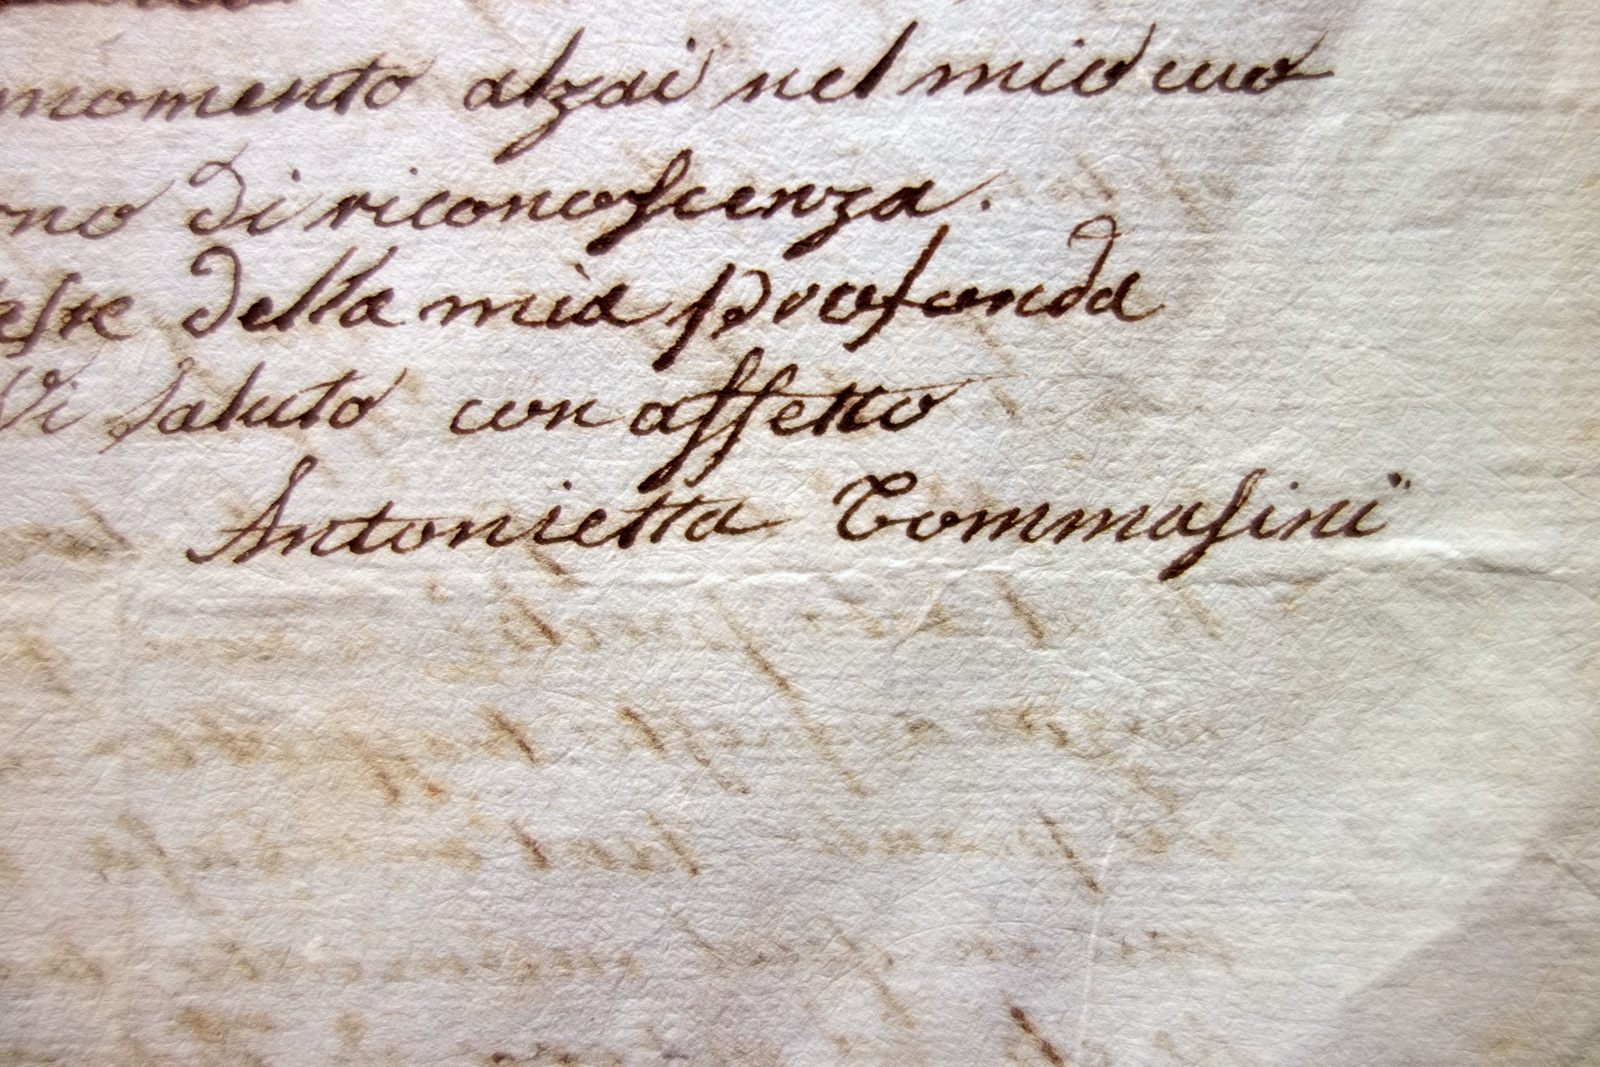 momento alzai nel mio cuo
ono di riconoscenza.
della mia profonda
Vi saluto con affetto
Antonietta Tommasini